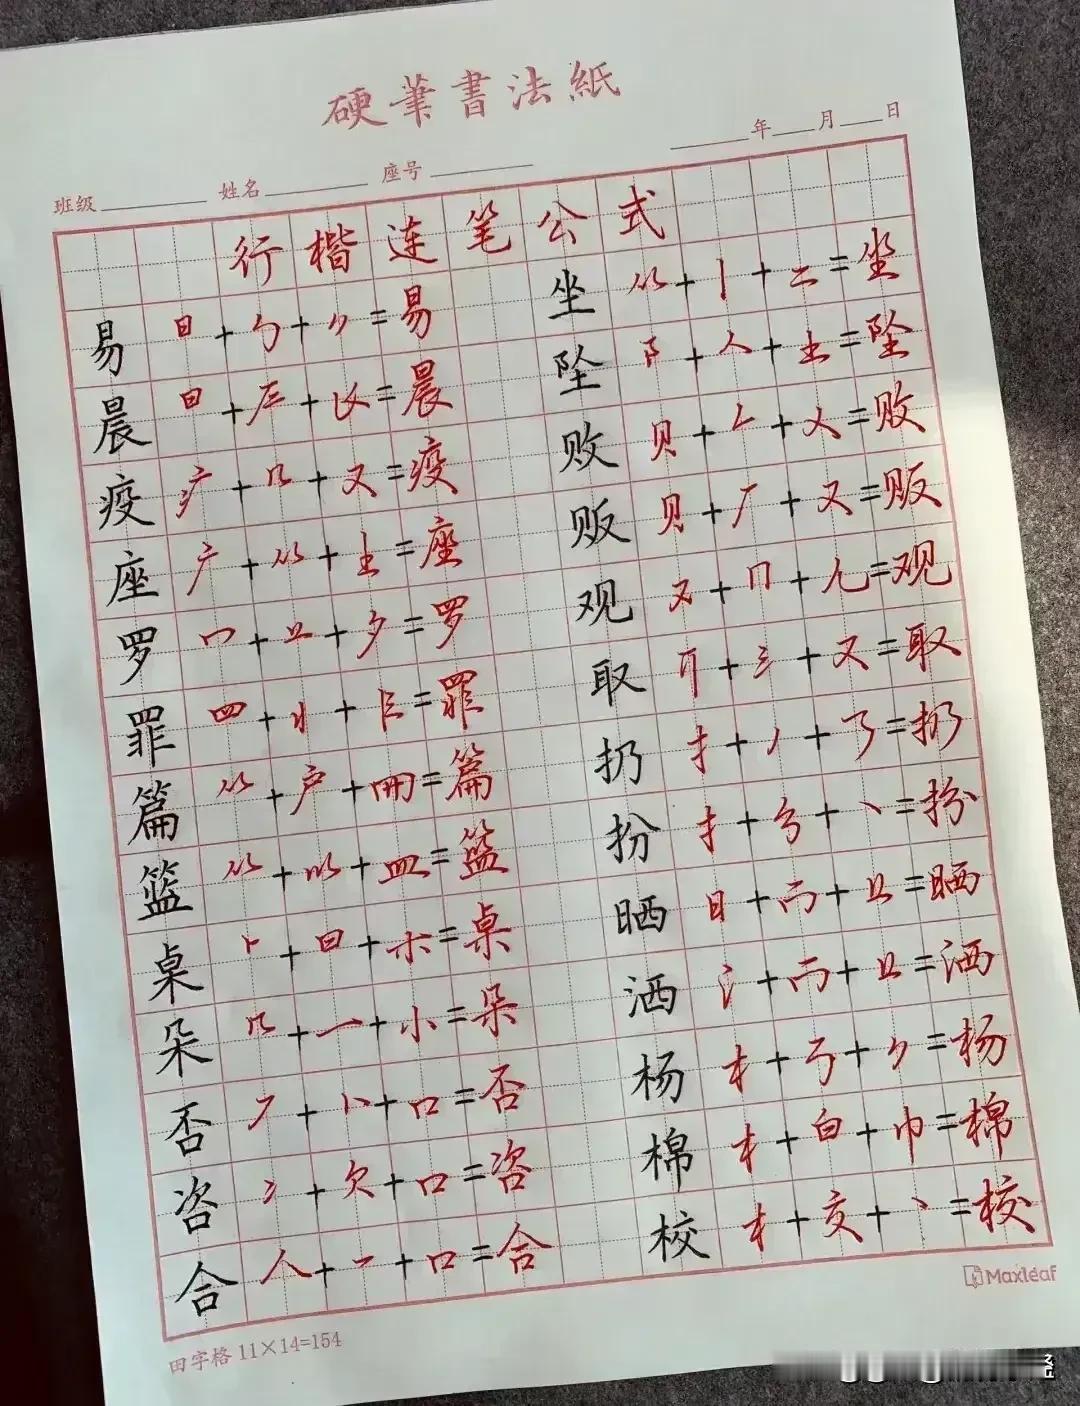 硬筆書法紙
年 月 日
班级 姓名 座号
行楷连笔公式
易 日+勹+㇒㇒=易
晨 日+厂二+𠄌㇏=晨
疫 疒+几+又=疫
座 广+从+土=座
罗 冖+ㅛ+夕=罗
罪 四+刂+㠪=罪
篇 ⺮+户+冊=篇
篮 ⺮+收+皿=篮
桌 ⺊+日+木=桌
朵 几+一+小=朵
否 丆+卜+口=否
咨 冫+欠+口=咨
合 人+一+口=合
坐 从+丨+二=坐
坠 阝+人+土=坠
败 贝+𠂉+乂=败
贩 贝+厂+又=贩
观 又+冂+儿=观
取 丌+三+又=取
扔 扌+丿+㇋=扔
扮 扌+分+丶=扮
晒 日+丙+ㅛ=晒
洒 氵+丙+ㅛ=洒
杨 木+㇋+㇒㇒=杨
棉 木+白+巾=棉
校 木+交+丶=校
田字格 11×14=154
Maxleaf